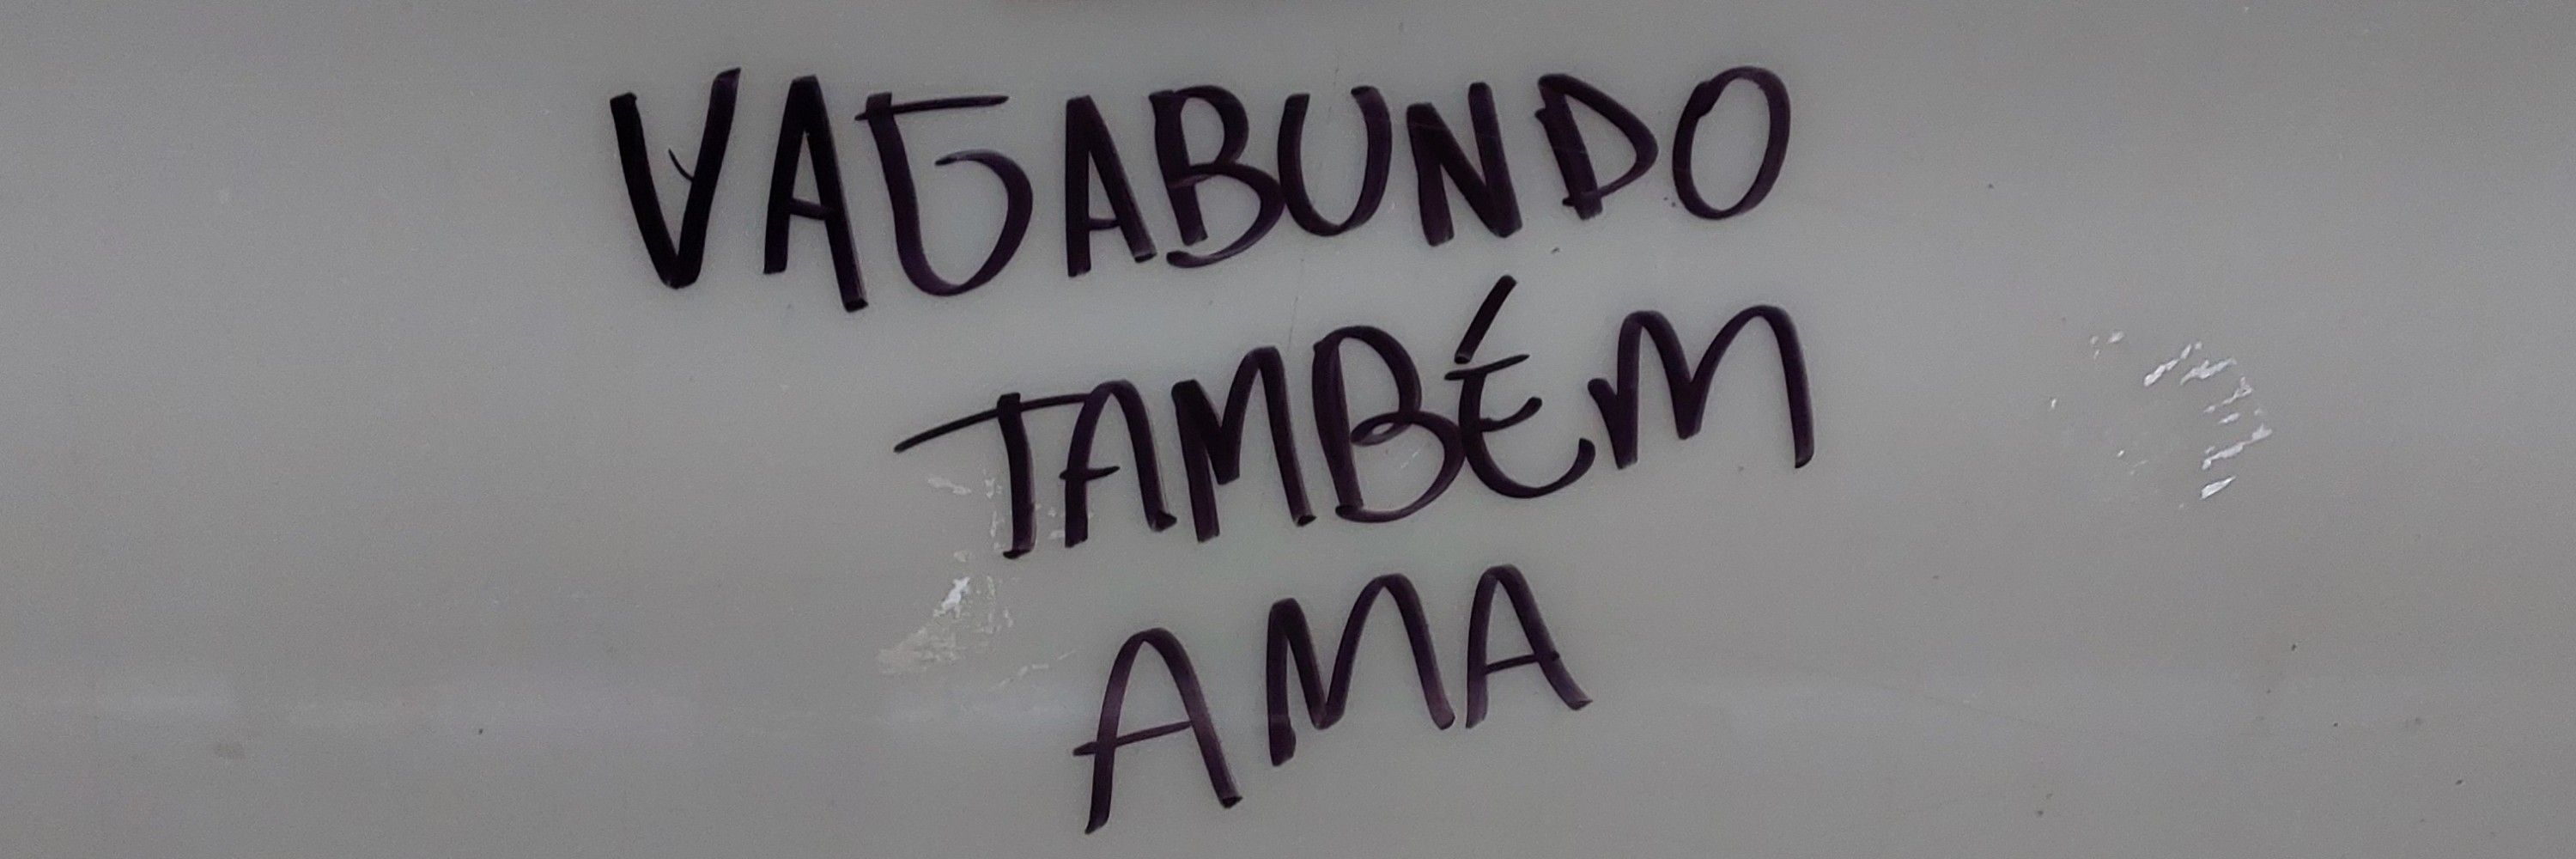 VAGABUNDO
TAMBÉM
AMA